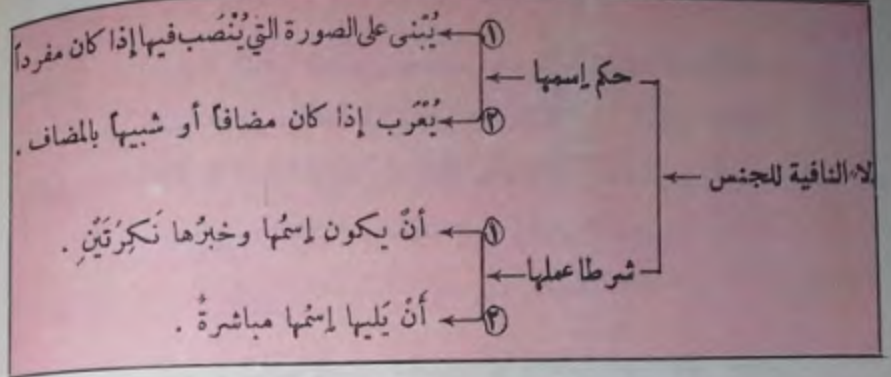 لا النافية للجنس
حكم إسمها
١ يُبْنى على الصورة التي يُنْصَب فيها إذا كان مفرداً
٢ يُعْرَب إذا كان مضافاً أو شبيهاً بالمضاف .
شرطا عملها
١ أنْ يكون إسمُها وخبرُها نَكِرَتَيْنِ .
٢ أَنْ يَليها إسْمُها مباشرةً .